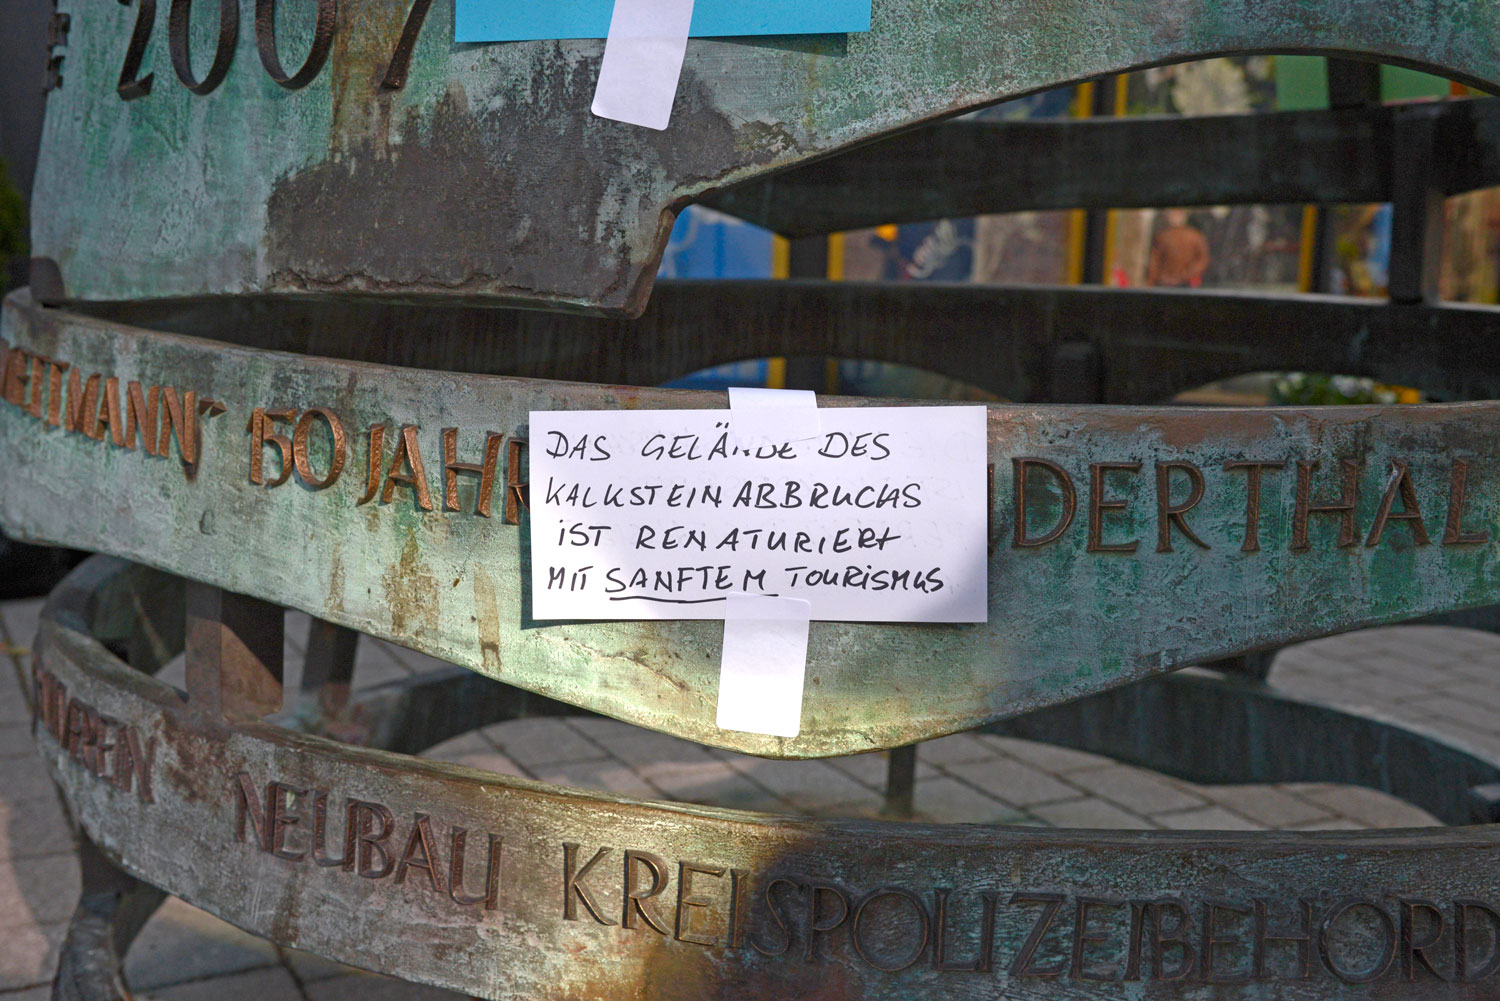 2007
WEITMANN" 150 JAHR
DERTHAL
DAS GELÄNDE DES
KALKSTEINABBRUCHS
IST RENATURIERT
MIT SANFTEM TOURISMUS
NEUBAU KREISPOLIZEIBEHÖRD